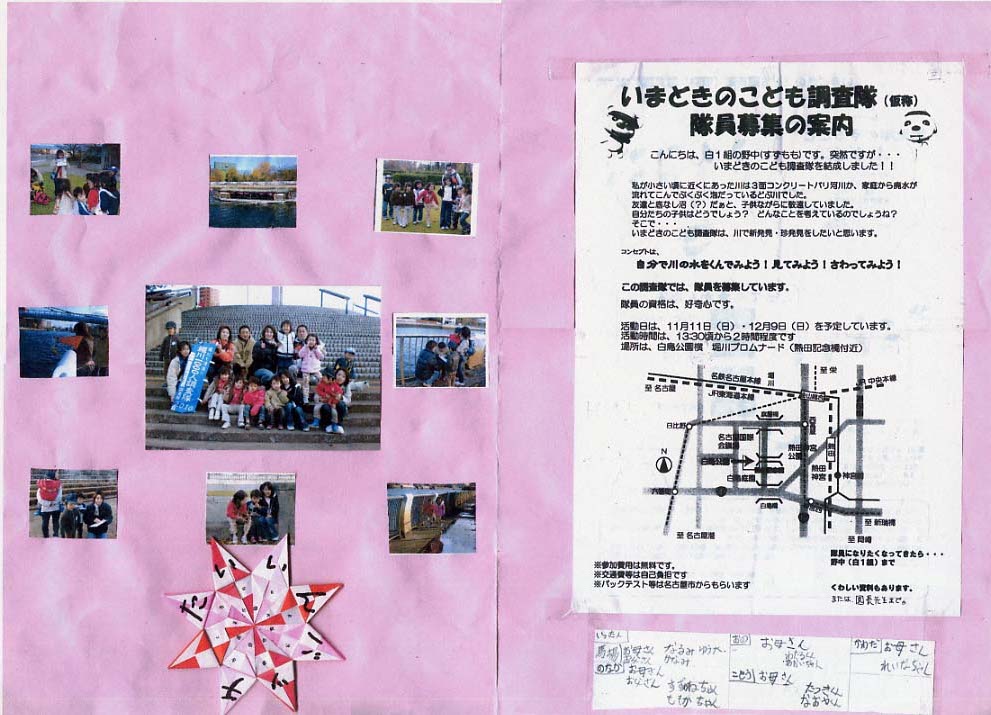 いまどきのこども調査隊（仮称）
隊員募集の案内
こんにちは、白１組の野中(すずもも)です。突然ですが・・・
いまどきのこども調査隊を結成しました！！
私が小さい頃に近くにあった川は３面コンクリートバリ河川か、家庭から廃水が
流れてこんでぶくぶく泡だっているどぶ川でした。
友達と底なし沼（？）だぁと、子供ながらに敬遠していました。
自分たちの子供はどうでしょう？　どんなことを考えているのでしょうね？
そこで・・・
いまどきのこども調査隊は、川で新発見・珍発見をしたいと思います。
コンセプトは、
自分で川の水をくんでみよう！見てみよう！さわってみよう！
この調査隊では、隊員を募集しています。
隊員の資格は、好奇心です。
活動日は、１１月１１日（日）・１２月９日（日）を予定しています。
活動時間は、13:30頃から２時間程度です
場所は、白鳥公園横　堀川プロムナード（熱田記念橋付近）
至 栄
名鉄名古屋本線
堀川
JR中央本線
至 名古屋
JR東海道本線
日比野
名古屋国際
会議場
熱田神宮
公園
熱田
白鳥公園
白鳥庭園
熱田
神宮
神宮前
六番町
白鳥橋
至 新瑞橋
至 名古屋港
至 岡崎
隊員になりたくなってきたら・・・
野中（白１組）まで
※参加費用は無料です。
※交通費等は自己負担です
※パックテスト等は名古屋市からもらいます
くわしい資料もあります。
または 園長先生まで。
馬場
お母さん
なるみ
かなみ
のなか
お母さん
お父さん
すずねちゃん
ももかちゃん
お母さん
ことう
お母さん
たつきくん
なおやくん
かめだ
お母さん
れいなちゃん